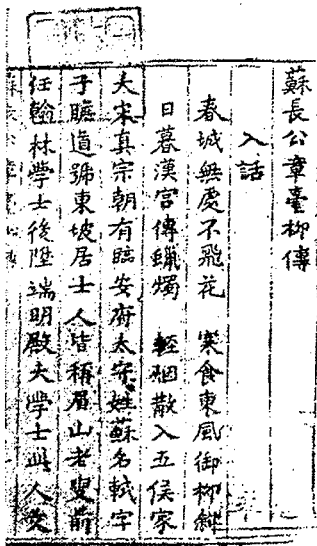 蘇長公章臺柳傳
入話
春城無處不飛花 寒食東風御柳斜
日暮漢宮傳蠟燭 輕烟散入五侯家
大宋真宗朝有臨安府太守姓蘇名軾字
子瞻道號東坡居士人皆稱眉山老叟前
任翰林學士後陞端明殿大學士此人文